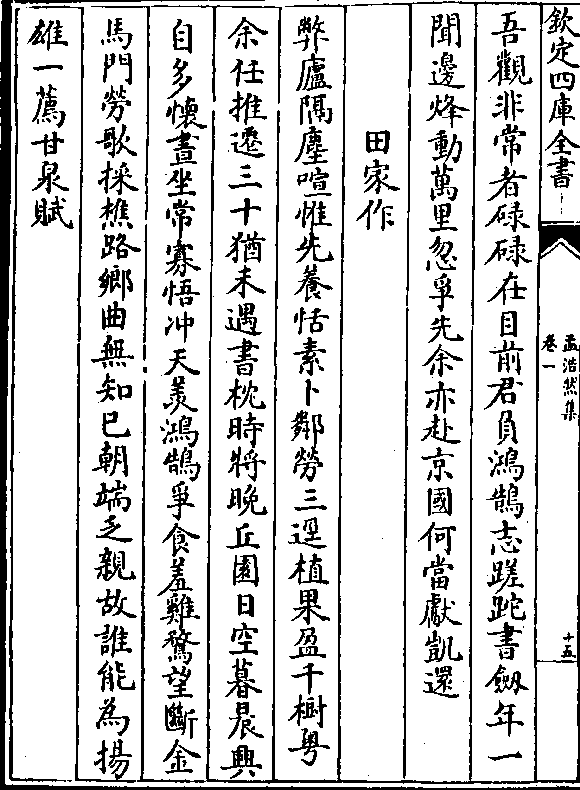 欽定四庫全書
孟浩然集
卷一
十五
吾觀非常者碌碌在目前君負鴻鵠志蹉跎書劒年一
聞邊烽動萬里忽爭先余亦赴京國何當獻凱還
田家作
弊廬隔塵喧惟先養恬素卜鄰勞三逕植果盈千樹粤
余任推遷三十猶未遇書枕時將晚丘園日空暮晨興
自多懷晝坐常寡悟冲天羡鴻鵠爭食羞雞鶩望斷金
馬門勞歌採樵路鄉曲無知已朝端乏親故誰能為揚
雄一薦甘泉賦